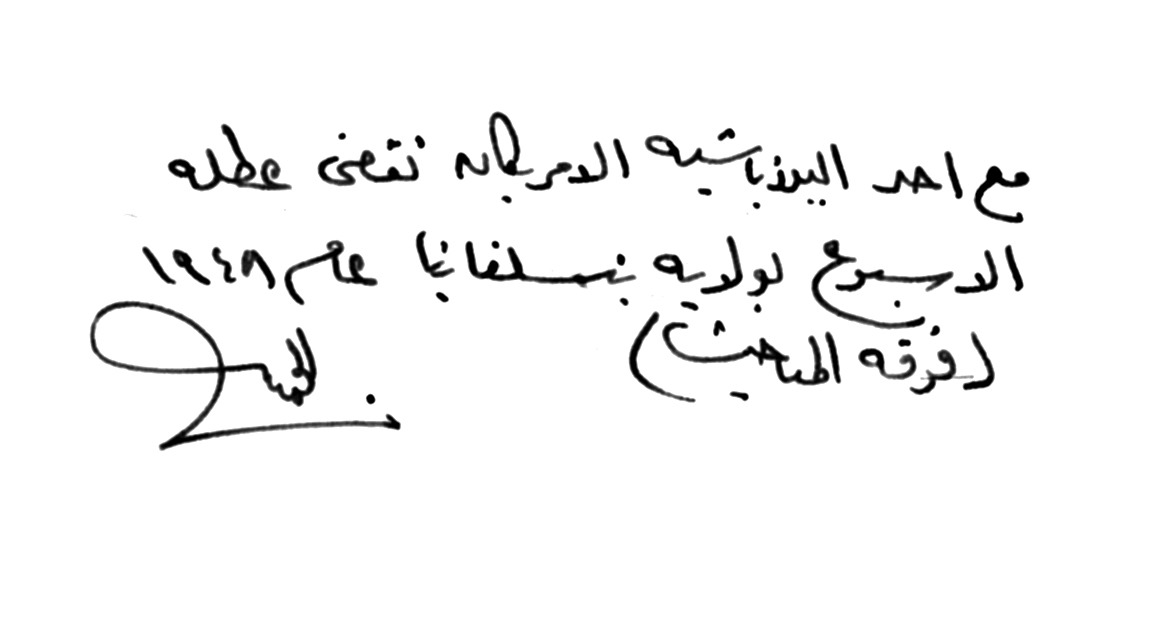 مع احد اليوزباشيه الامريكان نقضى عطله
الاسبوع بولايه بنسلفانيا عام ١٩٤٨
(فرقه المباحث)